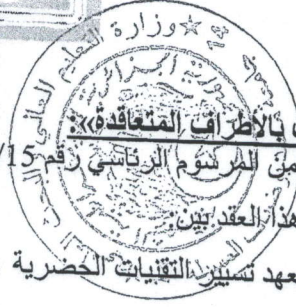 وزارة التعليم العالي
بالأطراف المتعاقدة»:
من المرسوم الرئاسي رقم 15/
هذا العقد بين:
معهد تسيير التقنيات الحضرية